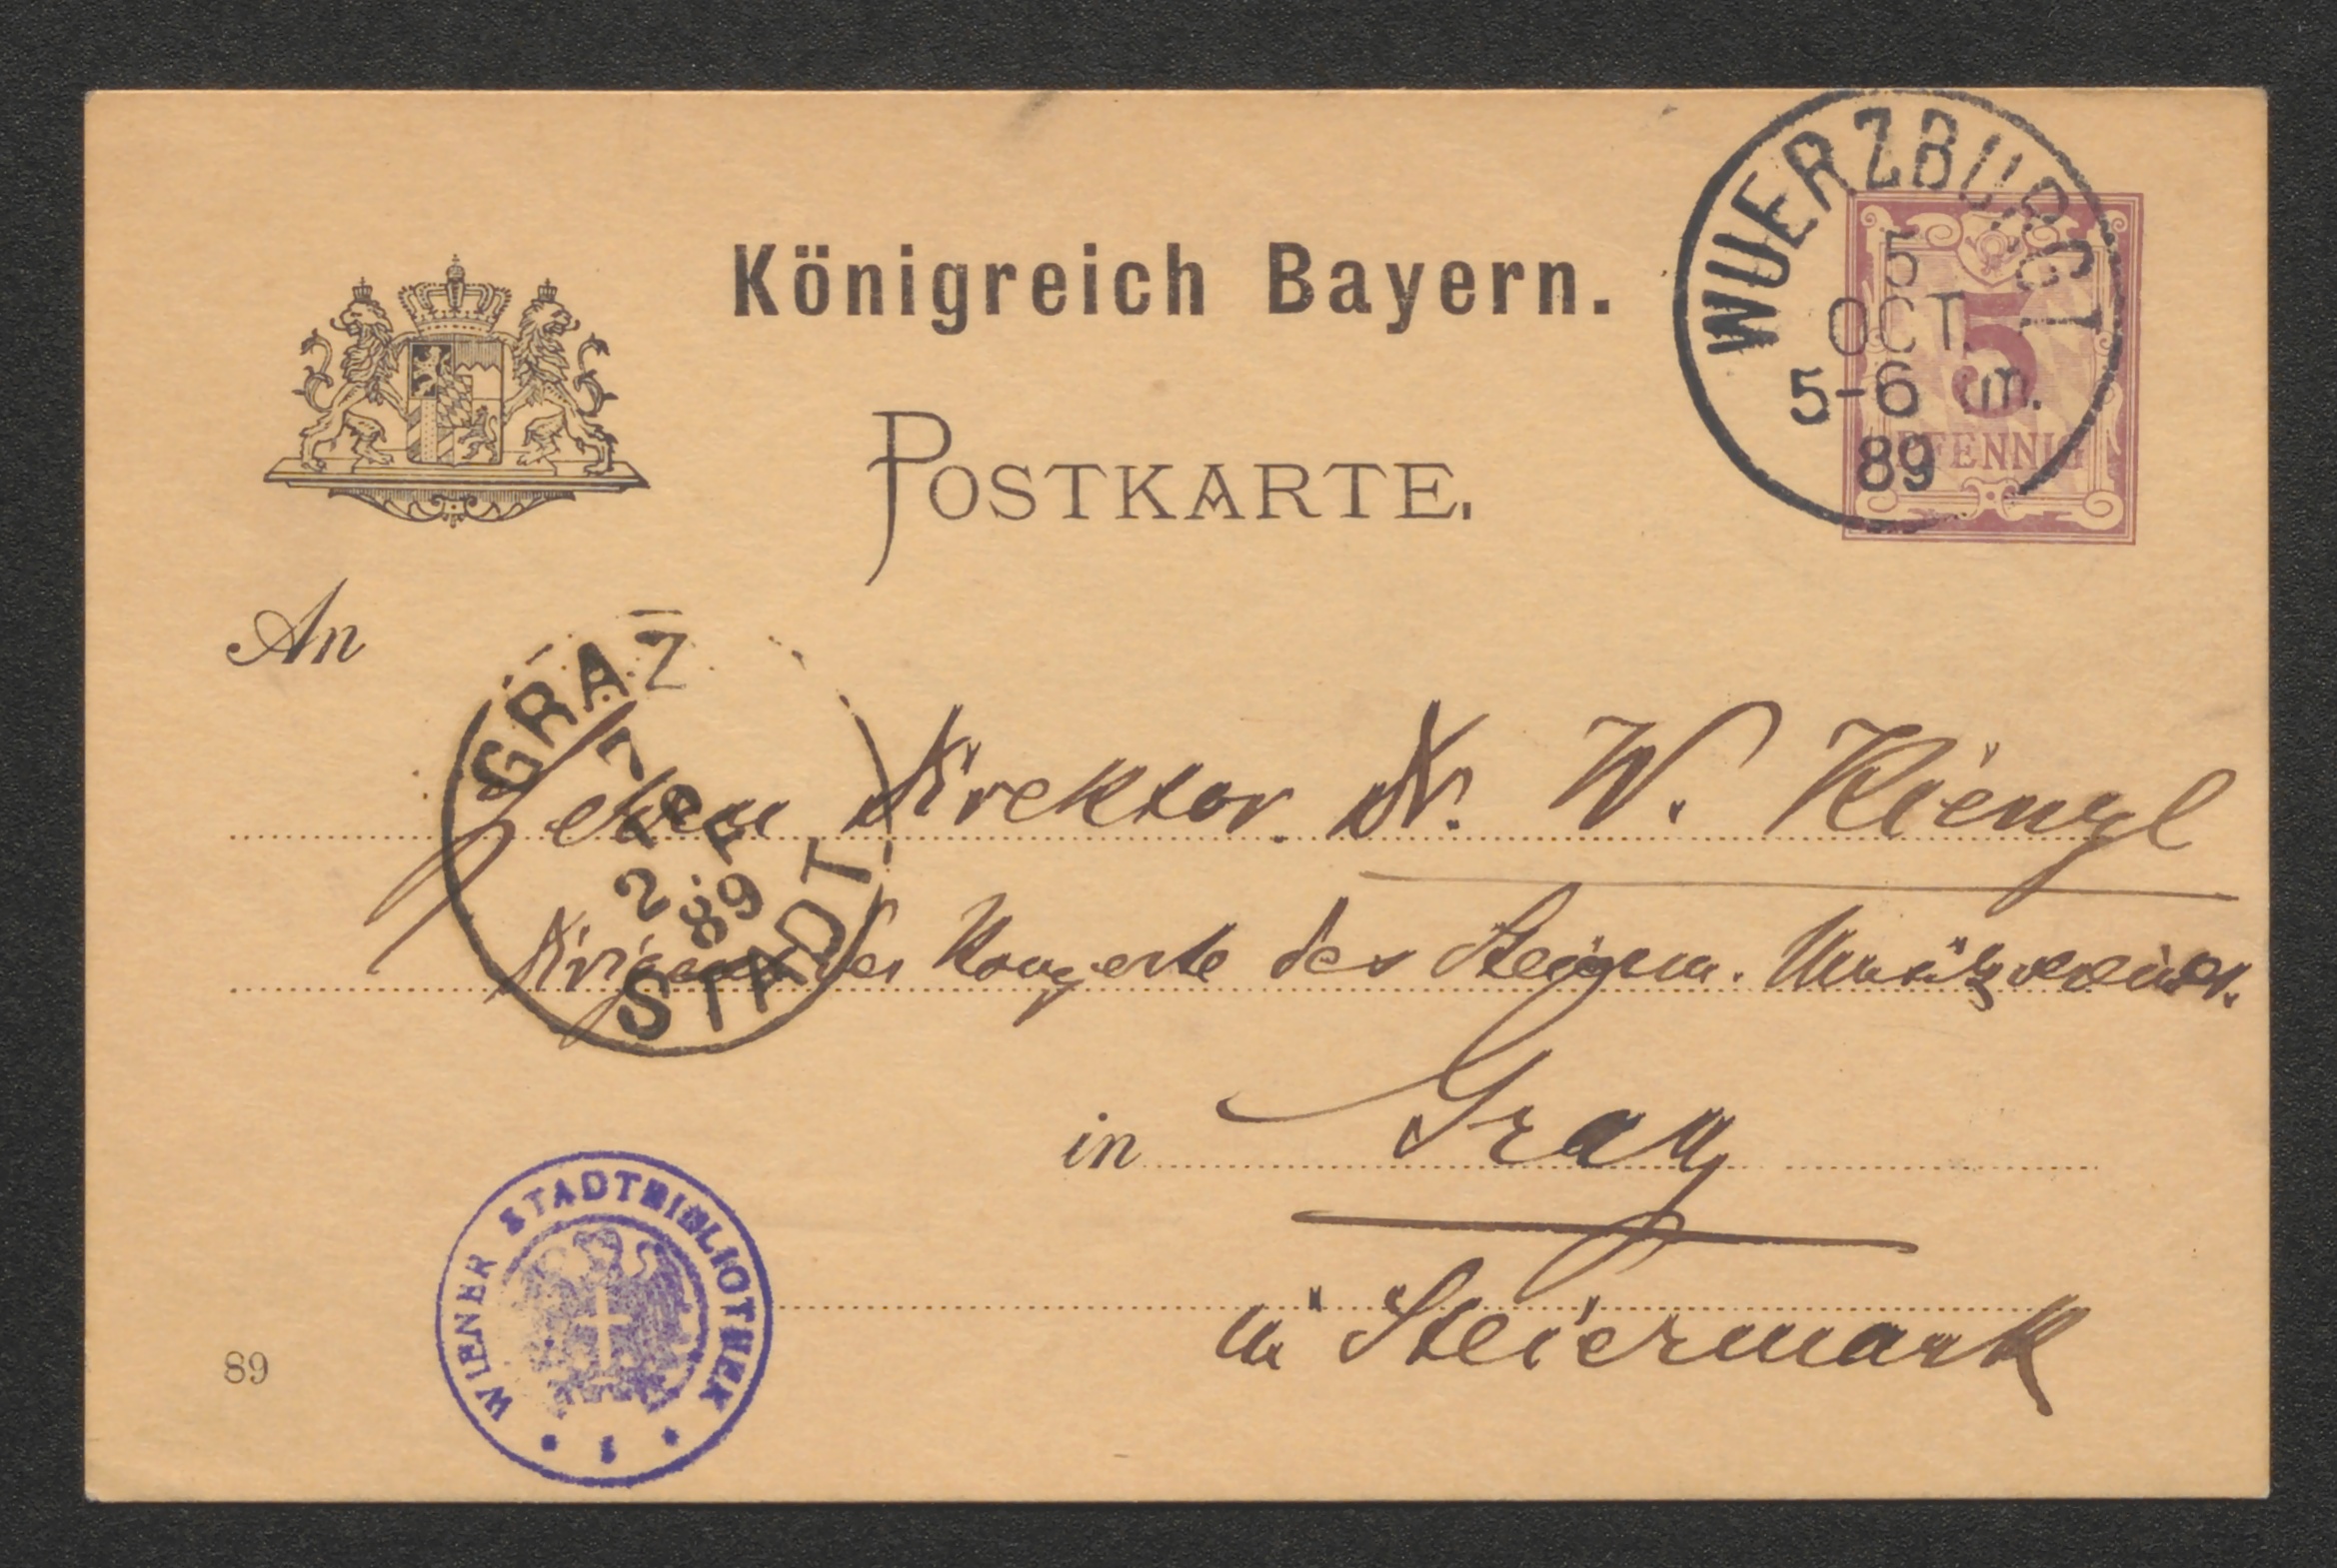 Königreich Bayern.
POSTKARTE.
WUERZBURG I
5
OCT.
5-6 Nm.
89
5
PFENNIG
An
GRAZ
7
2
89
STADT
Herrn Direktor Dr. W. Kienzl
Dirigent der Konzerte des Steierm. Musikvereins.
in Graz
in Steiermark
WIENER STADTBIBLIOTHEK
* 1 *
89